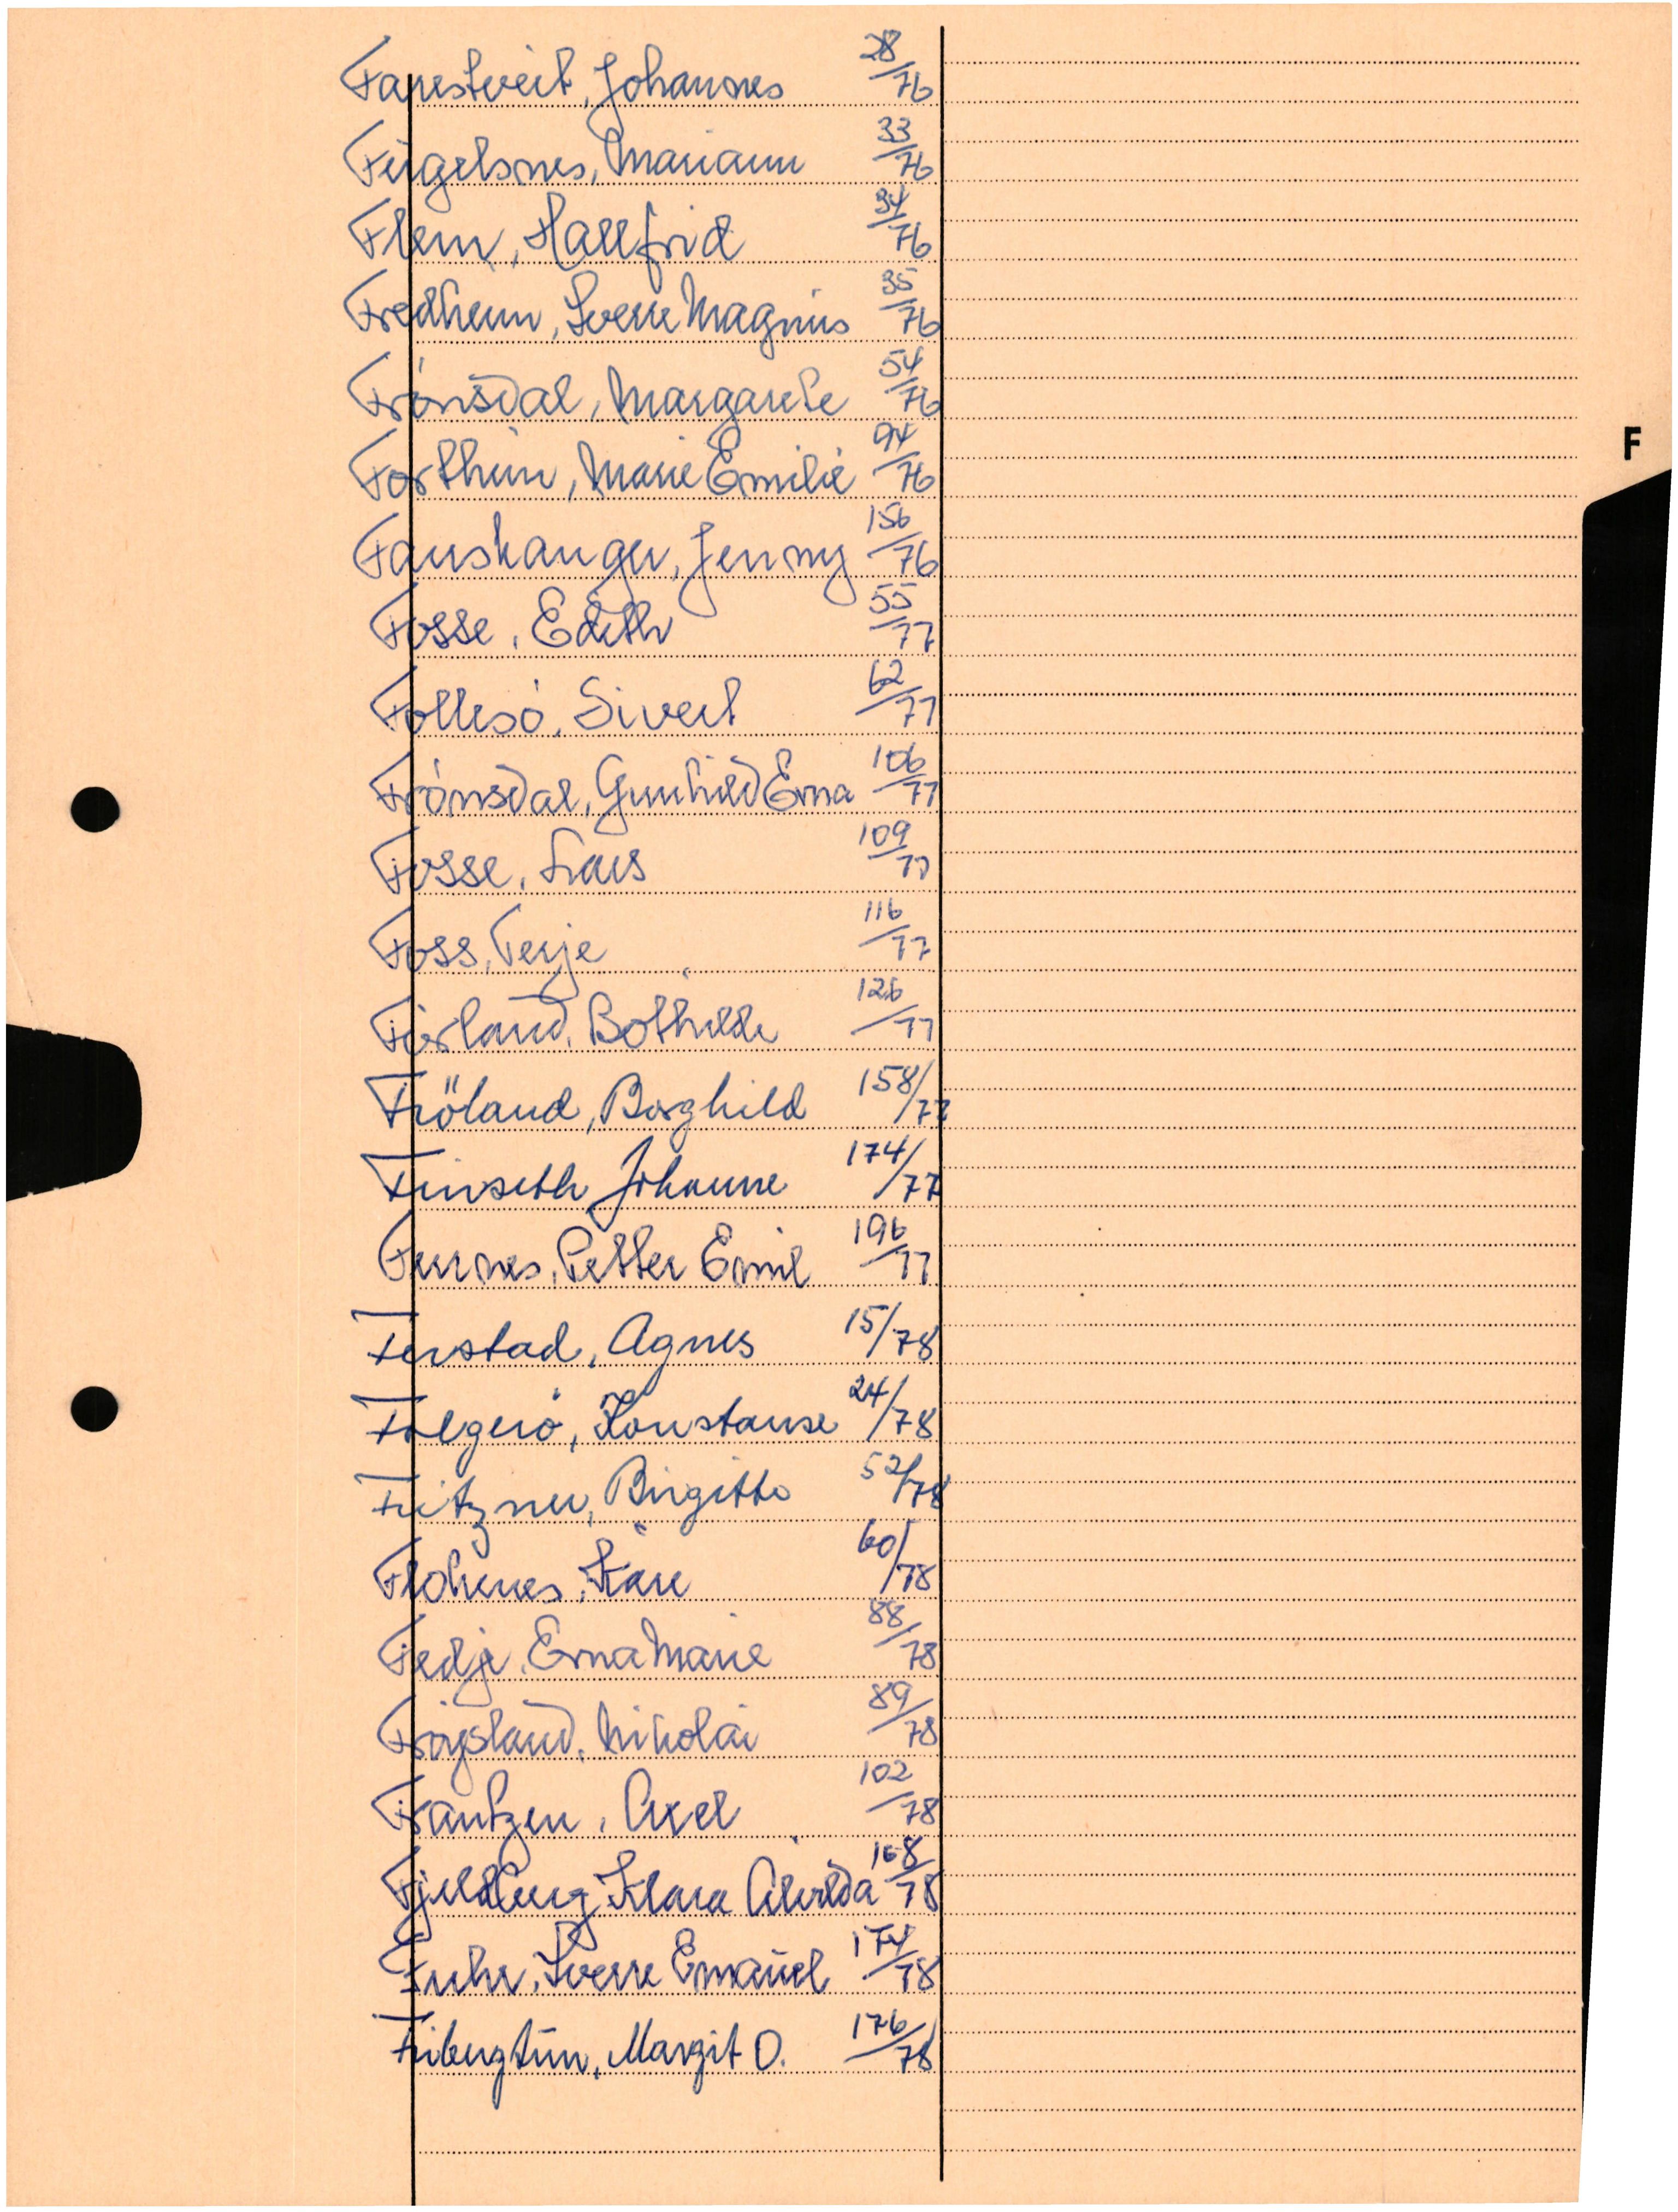 Farestveit, Johannes 28/76
Fugelsnes, Mariann 33/76
Flem, Hallfrid 34/76
Fredheim, Sverre Magnus 35/76
Frónsdal, Margarete 54/76
F
Forthun, Marie Emilie 94/76
Faushanger, Jenny 156/76
Fosse, Edith 55/77
Follesó, Sivert 62/77
Frónsdal, Gunhild Erna 106/77
Fosse, Lars 109/77
Foss, Terje 116/77
Förland, Bothilde 126/77
Fröland, Borghild 158/77
Finseth Johanne 174/77
Furnes, Petter Emil 196/77
Ferstad, Agnes 15/78
Folgeró, Konstanse 24/78
Fritzner, Birgitte 52/78
Flohenes, Kåre 60/78
Fedje, Erna Marie 88/78
Fröysland, Nikolai 89/78
Frantzen, Axel 102/78
Fjeldberg, Klara Alvilda 168/78
Fuhr, Sverre Emanuel 174/78
Fribergtun, Margit O. 176/78